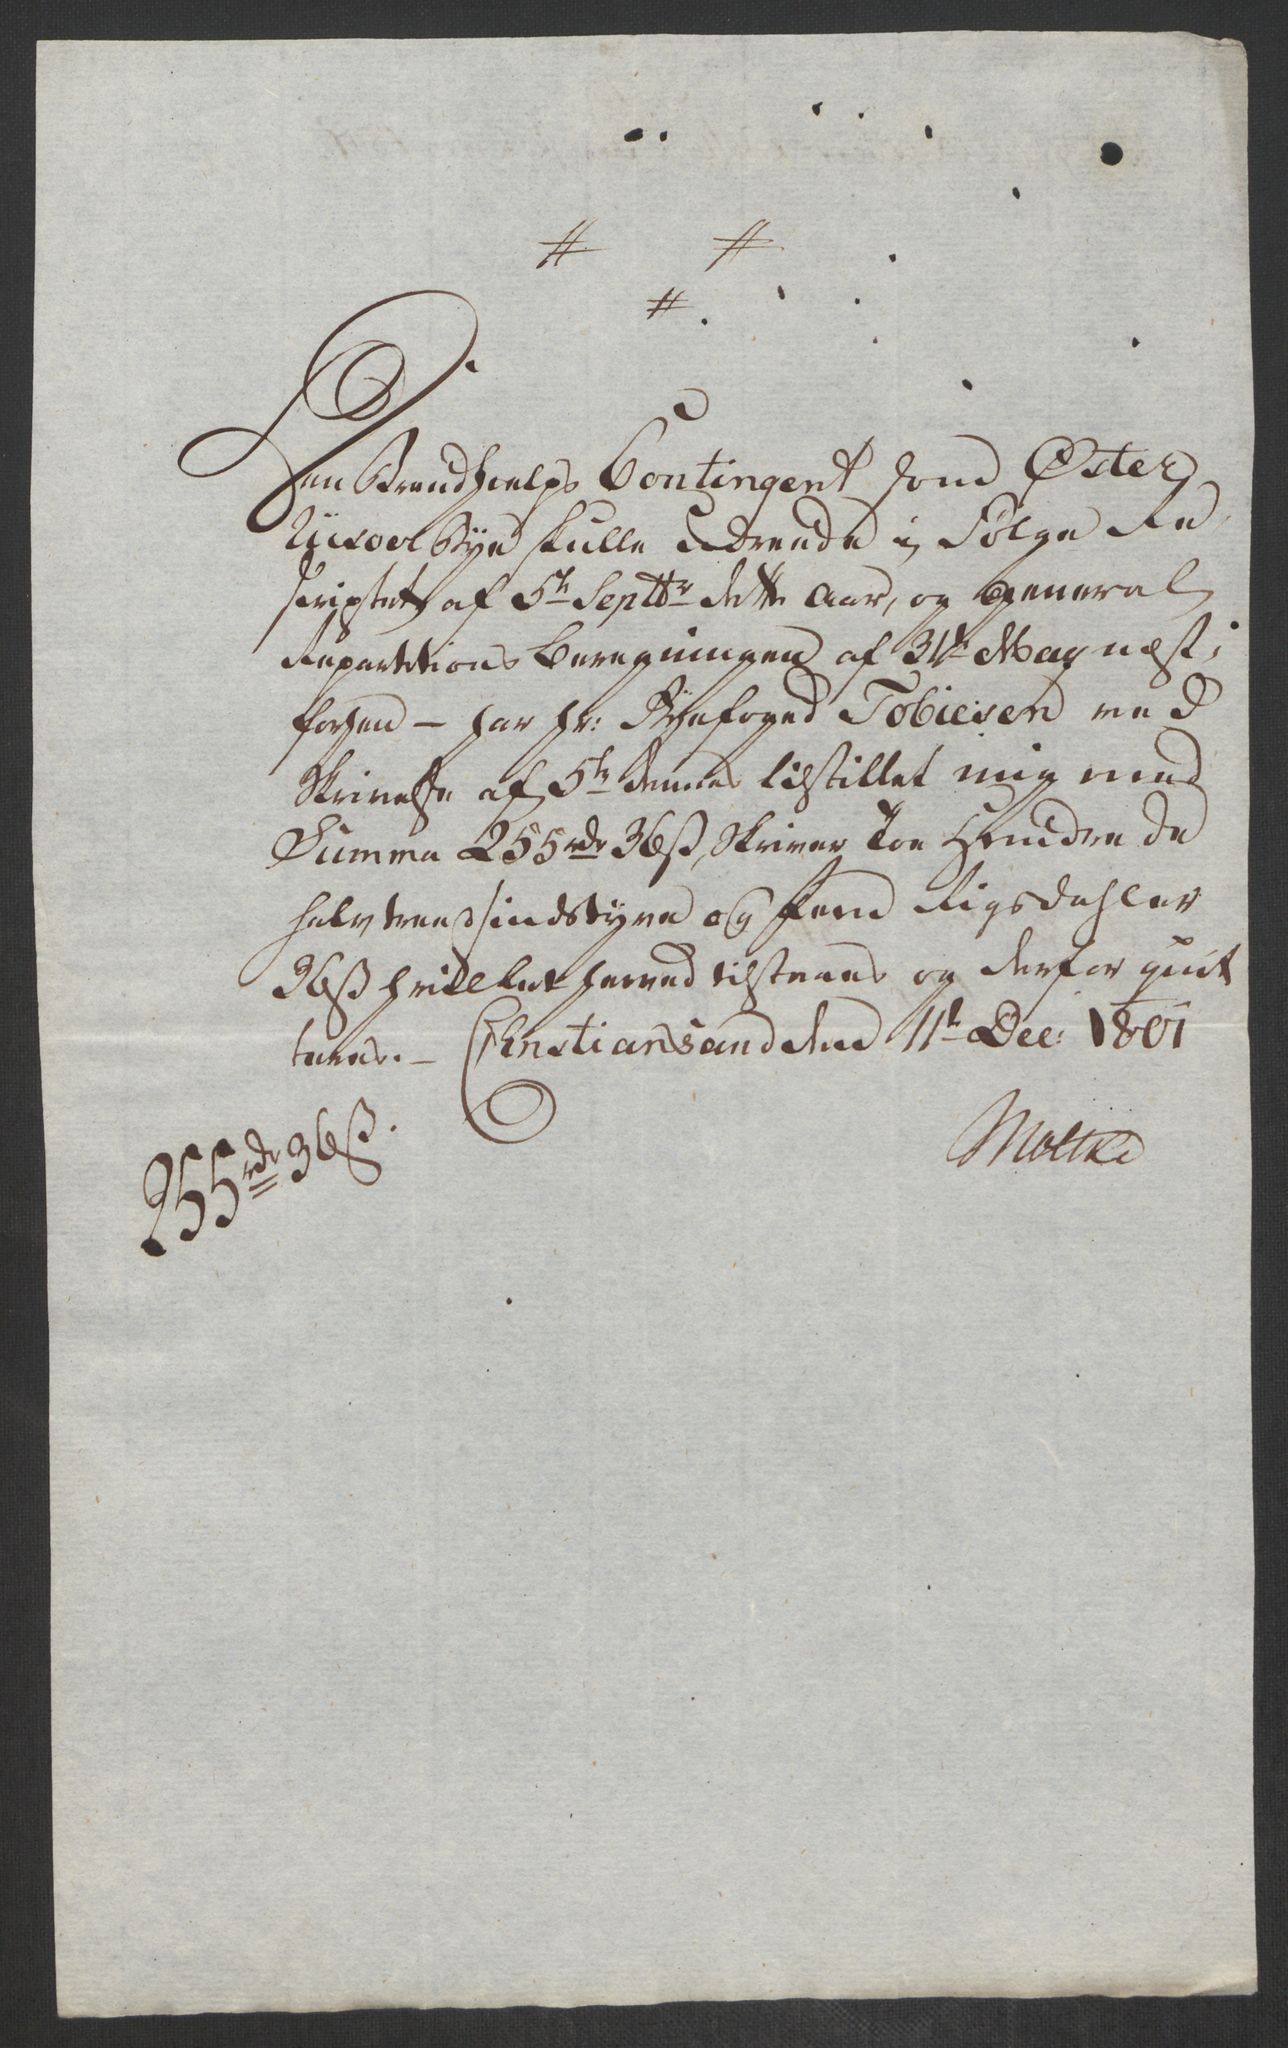 # #
#
Den Brandhielps Contingent som Øster
Riisoer Bye skulle udrede i Følge Re
scriptet af 5te Septbr dette Aar, og General
Repartitions Beregningen af 31te May næst
forhen — har hr: Byefoged Tobiesen ved
Skrivelse af 5te dennes tilstillet mig med
Summa 255 rdr 36ß, Skriver Toe Hundrede
halvtreedsindstyve og fem Rigsdahler
36ß hvilket herved tilstaaes og derfor quit
teres. — Christiansand den 11te Dec: 1801
Moltke
255 rdr 36ß.